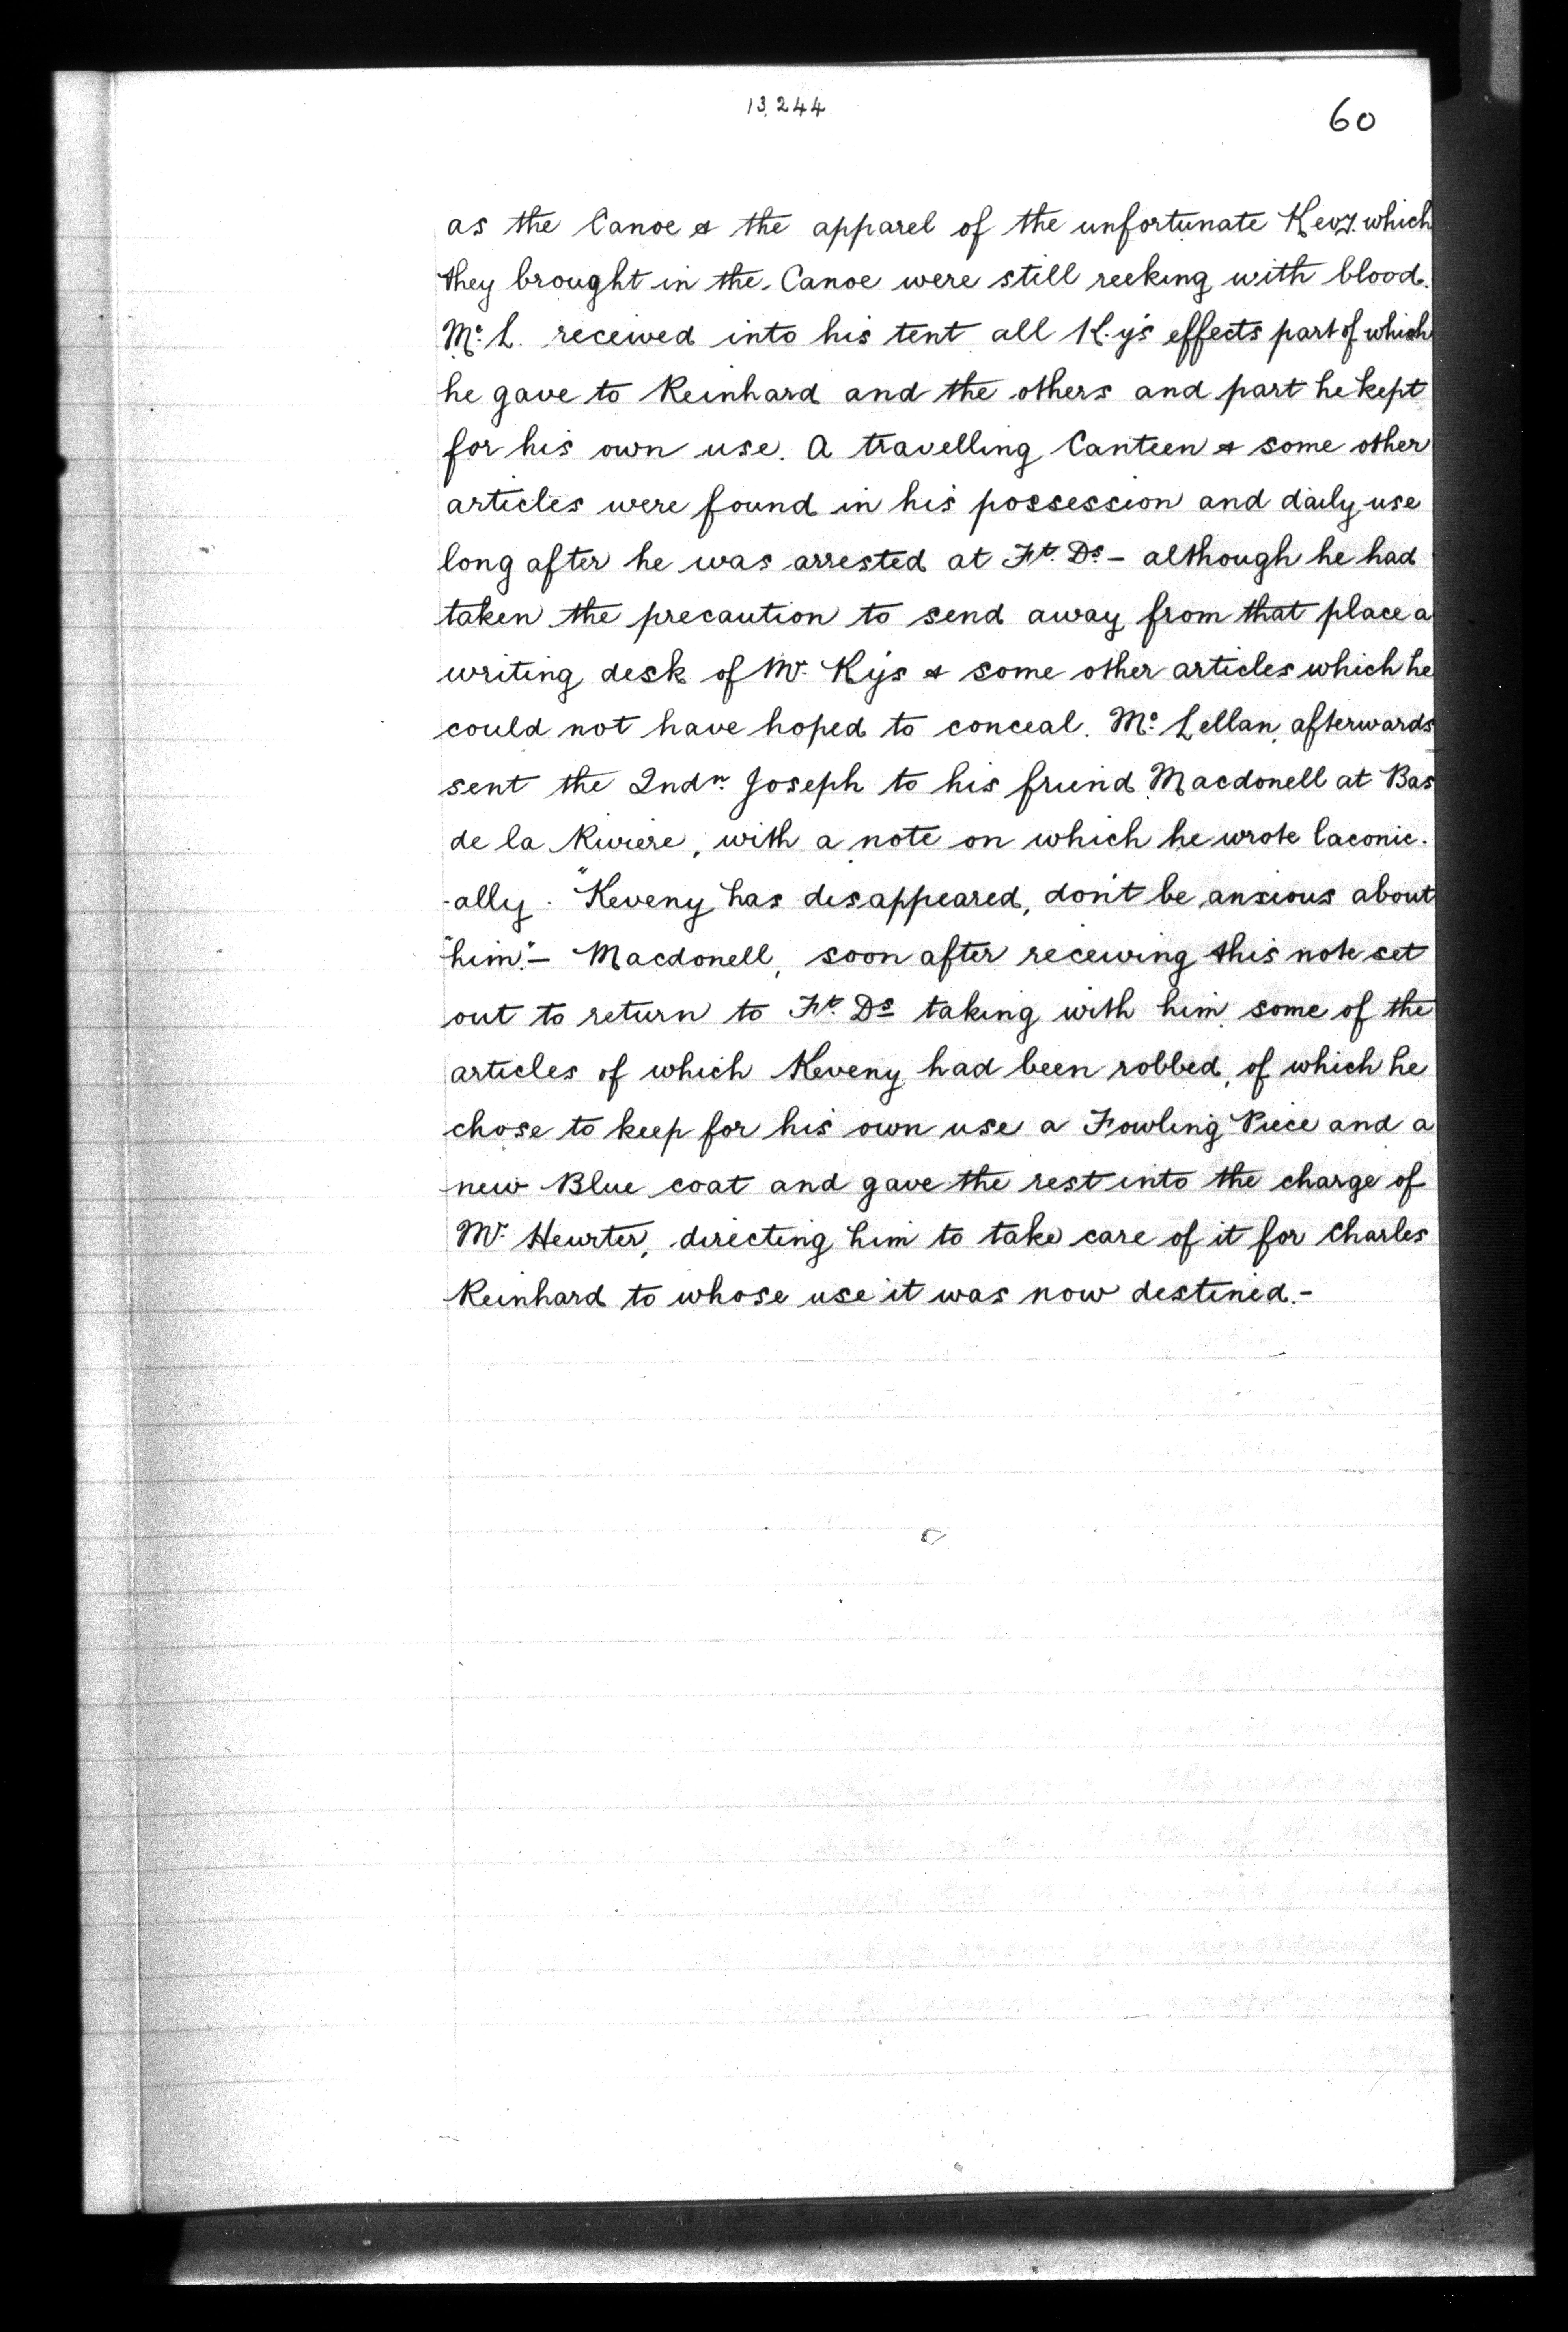 13,244
60
as the Canoe & the apparel of the unfortunate Kevy. which
they brought in the Canoe were still reeking with blood.
Mc. L. received into his tent all K.y's effects part of which
he gave to Reinhard and the others and part he kept
for his own use. A travelling Canteen & some other
articles were found in his possession and daily use
long after he was arrested at Ft. Ds - although he had
taken the precaution to send away from that place a
writing desk of Mr. Kys & some other articles which he
could not have hoped to conceal. Mc. Lellan, afterwards
sent the Indn. Joseph to his friend Macdonell at Bas
de la Riviere, with a note on which he wrote laconic.
-ally. "Keveny has disappeared, don't be anxious about
"him."- Macdonell, soon after receiving this note set
out to return to Ft. Ds taking with him some of the
articles of which Keveny had been robbed, of which he
chose to keep for his own use a Fowling Piece and a
new Blue coat and gave the rest into the charge of
Mr. Heurter, directing him to take care of it for Charles
Reinhard to whose use it was now destined.-